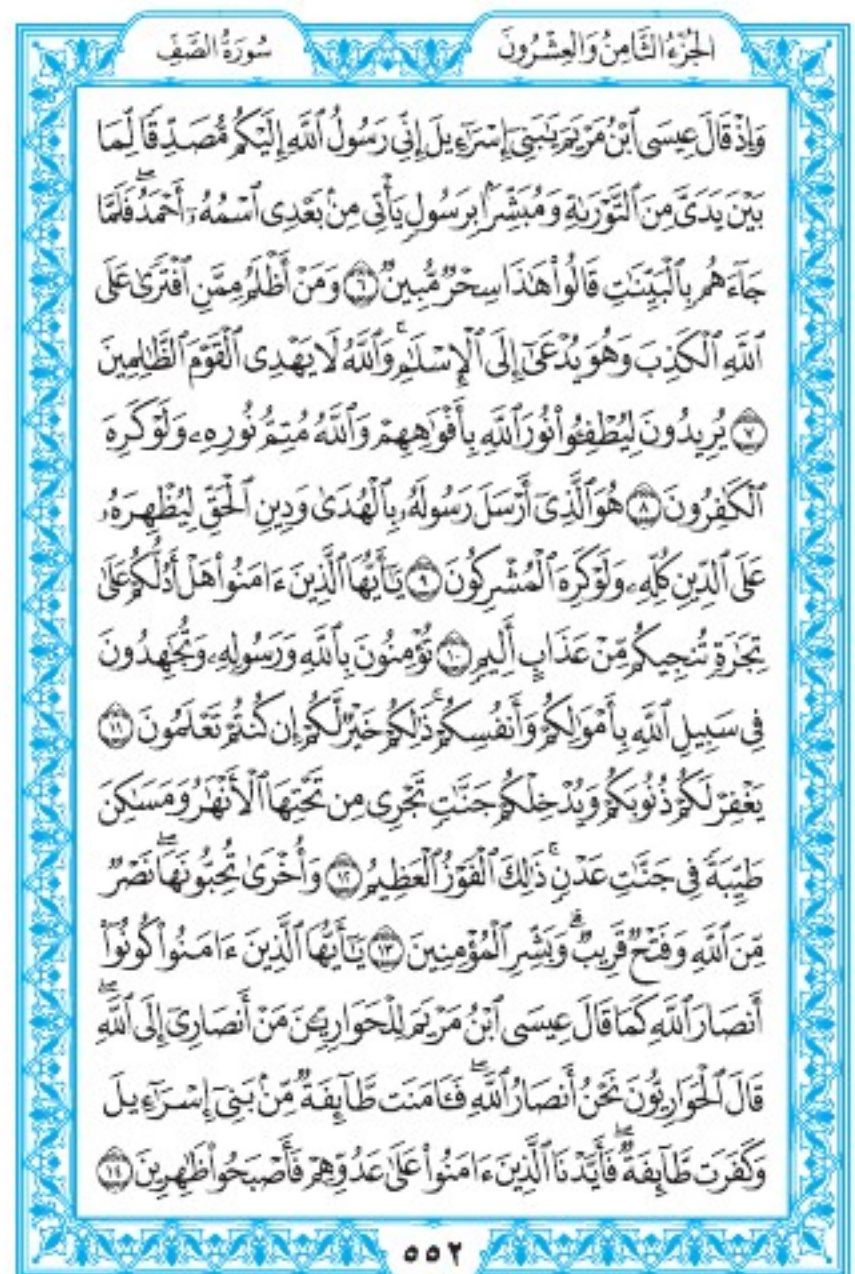 الجُزْءُ الثَّامِنُ وَالعِشْرُونَ
سُورَةُ الصَّفِّ
وَإِذْ قَالَ عِيسَى ٱبْنُ مَرْيَمَ يَٰبَنِىٓ إِسْرَٰٓءِيلَ إِنِّى رَسُولُ ٱللَّهِ إِلَيْكُم مُّصَدِّقًا لِّمَا
بَيْنَ يَدَىَّ مِنَ ٱلتَّوْرَىٰةِ وَمُبَشِّرًۢا بِرَسُولٍ يَأْتِى مِنۢ بَعْدِى ٱسْمُهُۥٓ أَحْمَدُۖ فَلَمَّا
جَآءَهُم بِٱلْبَيِّنَٰتِ قَالُوا۟ هَٰذَا سِحْرٌ مُّبِينٌ ٦ وَمَنْ أَظْلَمُ مِمَّنِ ٱفْتَرَىٰ عَلَى
ٱللَّهِ ٱلْكَذِبَ وَهُوَ يُدْعَىٰٓ إِلَى ٱلْإِسْلَٰمِۚ وَٱللَّهُ لَا يَهْدِى ٱلْقَوْمَ ٱلظَّٰلِمِينَ
٧ يُرِيدُونَ لِيُطْفِـُٔوا۟ نُورَ ٱللَّهِ بِأَفْوَٰهِهِمْ وَٱللَّهُ مُتِمُّ نُورِهِۦ وَلَوْ كَرِهَ
ٱلْكَٰفِرُونَ ٨ هُوَ ٱلَّذِىٓ أَرْسَلَ رَسُولَهُۥ بِٱلْهُدَىٰ وَدِينِ ٱلْحَقِّ لِيُظْهِرَهُۥ
عَلَى ٱلدِّينِ كُلِّهِۦ وَلَوْ كَرِهَ ٱلْمُشْرِكُونَ ٩ يَٰٓأَيُّهَا ٱلَّذِينَ ءَامَنُوا۟ هَلْ أَدُلُّكُمْ عَلَىٰ
تِجَٰرَةٍ تُنجِيكُم مِّنْ عَذَابٍ أَلِيمٍ ١٠ تُؤْمِنُونَ بِٱللَّهِ وَرَسُولِهِۦ وَتُجَٰهِدُونَ
فِى سَبِيلِ ٱللَّهِ بِأَمْوَٰلِكُمْ وَأَنفُسِكُمْۚ ذَٰلِكُمْ خَيْرٌ لَّكُمْ إِن كُنتُمْ تَعْلَمُونَ ١١
يَغْفِرْ لَكُمْ ذُنُوبَكُمْ وَيُدْخِلْكُمْ جَنَّٰتٍ تَجْرِى مِن تَحْتِهَا ٱلْأَنْهَٰرُ وَمَسَٰكِنَ
طَيِّبَةً فِى جَنَّٰتِ عَدْنٍۚ ذَٰلِكَ ٱلْفَوْزُ ٱلْعَظِيمُ ١٢ وَأُخْرَىٰ تُحِبُّونَهَاۖ نَصْرٌ
مِّنَ ٱللَّهِ وَفَتْحٌ قَرِيبٌۗ وَبَشِّرِ ٱلْمُؤْمِنِينَ ١٣ يَٰٓأَيُّهَا ٱلَّذِينَ ءَامَنُوا۟ كُونُوٓا۟
أَنصَارَ ٱللَّهِ كَمَا قَالَ عِيسَى ٱبْنُ مَرْيَمَ لِلْحَوَارِيِّـۧنَ مَنْ أَنصَارِىٓ إِلَى ٱللَّهِۖ
قَالَ ٱلْحَوَارِيُّونَ نَحْنُ أَنصَارُ ٱللَّهِۖ فَـَٔامَنَت طَّآئِفَةٌ مِّنۢ بَنِىٓ إِسْرَٰٓءِيلَ
وَكَفَرَت طَّآئِفَةٌۖ فَأَيَّدْنَا ٱلَّذِينَ ءَامَنُوا۟ عَلَىٰ عَدُوِّهِمْ فَأَصْبَحُوا۟ ظَٰهِرِينَ ١٤
٥٥٢